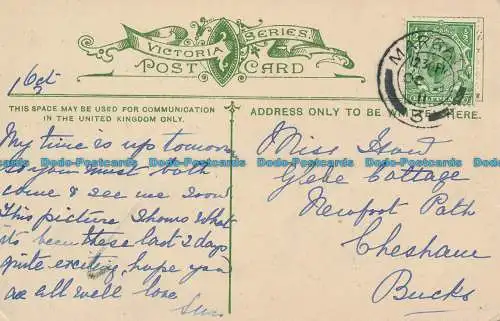 VICTORIA SERIES.
POST CARD
Oct
THIS SPACE MAY BE USED FOR COMMUNICATION
IN THE UNITED KINGDOM ONLY.
ADDRESS ONLY TO BE HERE.
MARGA
12 30 P
OC
11
3
My time is up tomorrow
so you must both
come & see me soon
This picture shows what
its been these last 2 days
quite exciting, hope you
are all well love
Miss
Glebe Cottage
Newfoot Path
Chesham
Bucks
Dodo-Postcards Dodo-Postcards Dodo-Postcards Dodo-Postcards